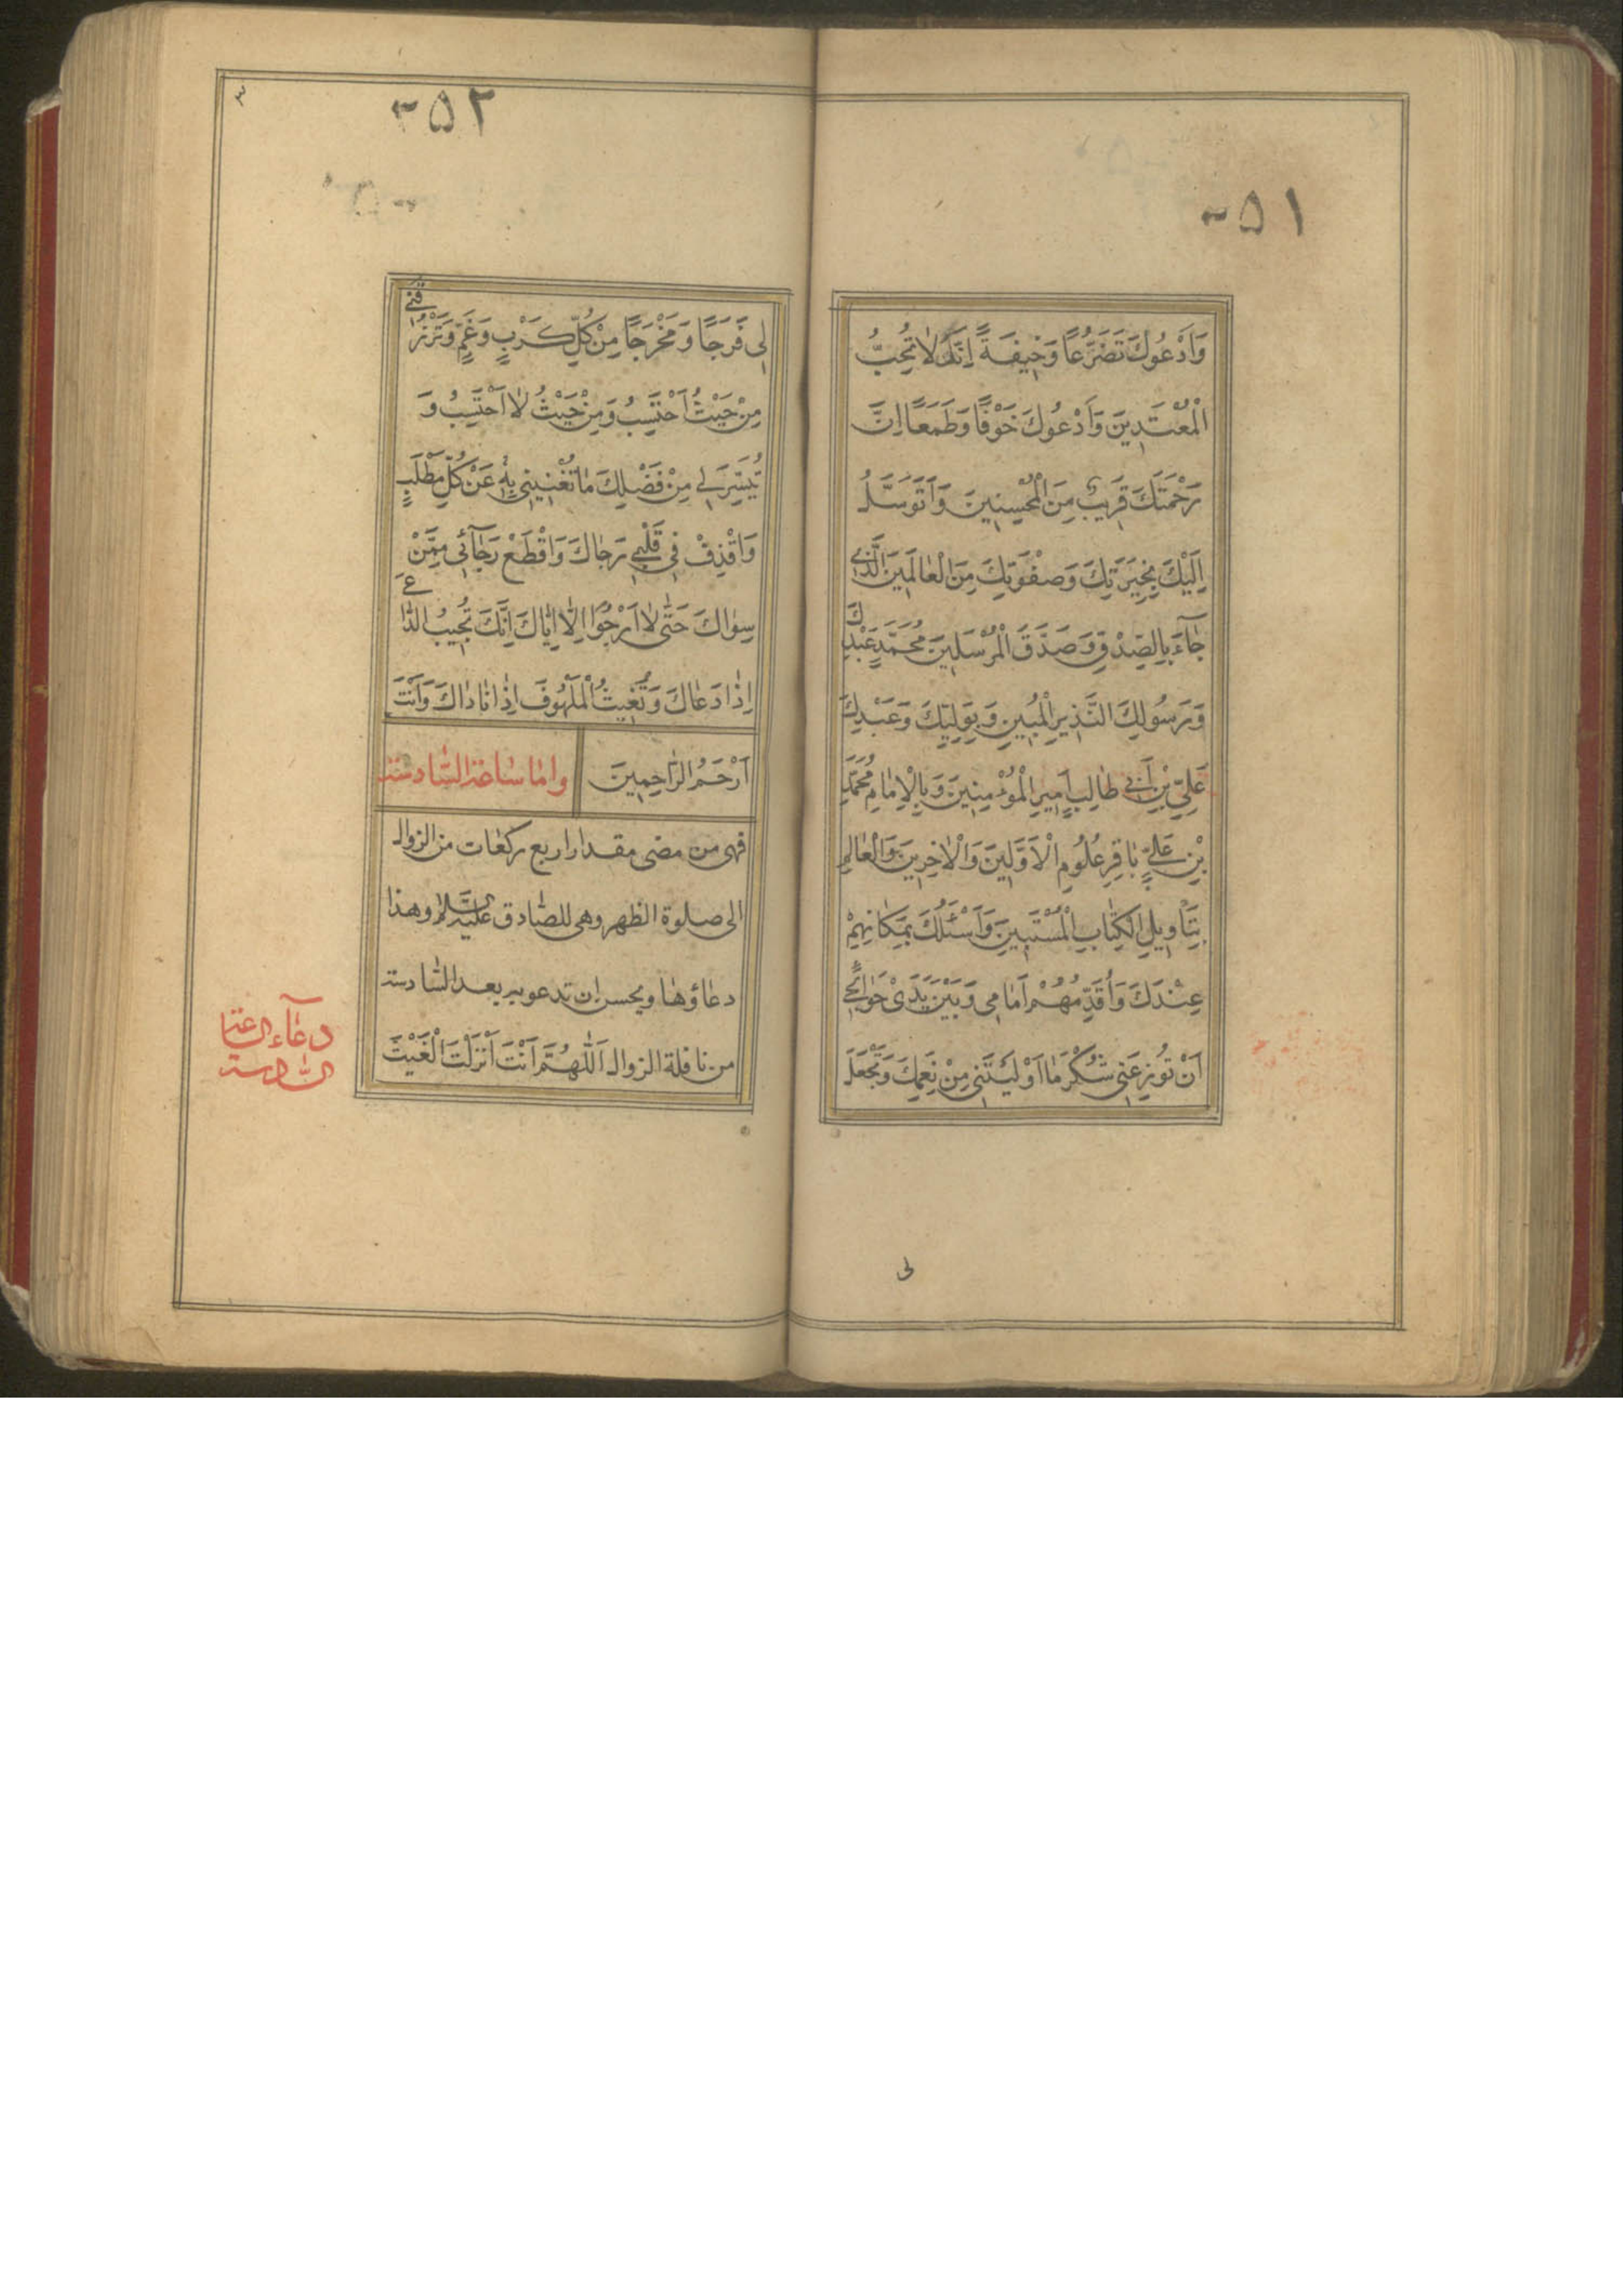 ۳۵۱
وَاَدْعُوكَ تَضَرُّعًا وَخِيفَةً اِنَّكَ لَا تُحِبُّ
الْمُعْتَدِينَ وَاَدْعُوكَ خَوْفًا وَطَمَعًا اِنَّ
رَحْمَتَكَ قَرِيبٌ مِنَ الْمُحْسِنِينَ وَاَتَوَسَّلُ
اِلَيْكَ بِخِيَرَتِكَ وَصَفْوَتِكَ مِنَ الْعَالَمِينَ الَّذِي
جَآءَ بِالصِّدْقِ وَصَدَّقَ الْمُرْسَلِينَ مُحَمَّدٍ عَبْدِكَ
وَرَسُولِكَ النَّذِيرِ الْمُبِينِ وَبِوَلِيِّكَ وَعَبْدِكَ
عَلِيِّ بْنِ اَبِي طَالِبٍ اَمِيرِ الْمُؤْمِنِينَ وَبِالْاِمَامِ مُحَمَّدِ
بْنِ عَلِيٍّ بَاقِرِ عُلُومِ الْاَوَّلِينَ وَالْاٰخِرِينَ وَالْعَالِمِ
بِتَأْوِيلِ الْكِتَابِ الْمُسْتَبِينَ وَاَسْئَلُكَ بِمَكَانِهِمْ
عِنْدَكَ وَاُقَدِّمُهُمْ اَمَامِي وَبَيْنَ يَدَيْ حَوَائِجِي
اَنْ تُوزِعَنِي شُكْرَ مَا اَوْلَيْتَنِي مِنْ نِعَمِكَ وَتَجْعَلَ
لی
۳۵۲
لِي فَرَجًا وَمَخْرَجًا مِنْ كُلِّ كَرْبٍ وَغَمٍّ وَتَرْزُقَنِي
مِنْ حَيْثُ اَحْتَسِبُ وَمِنْ حَيْثُ لَا اَحْتَسِبُ وَ
تُيَسِّرَ لِي مِنْ فَضْلِكَ مَا تُغْنِينِي بِهِ عَنْ كُلِّ مَطْلَبٍ
وَاقْذِفْ فِي قَلْبِي رَجَاكَ وَاقْطَعْ رَجَآئِي مِمَّنْ
سِوَاكَ حَتَّى لَا اَرْجُوَا اِلَّا اِيَّاكَ اِنَّكَ تُجِيبُ الدَّاعِيَ
اِذَا دَعَاكَ وَتُغِيثُ الْمَلْهُوفَ اِذَا نَادَاكَ وَاَنْتَ
اَرْحَمُ الرَّاحِمِينَ واما ساعة السّادسة
فهی من مضی مقدار اربع ركعات من الزوال
الی صلوة الظهر وهی للصّادق علیه السّلام وهذا
دعاؤها ويحسن ان تدعو به بعد السّادسة
من نافلة الزوال اَللّٰهُمَّ اَنْتَ اَنْزَلْتَ الْغَيْثَ
دعآء الساعة
السّادسة